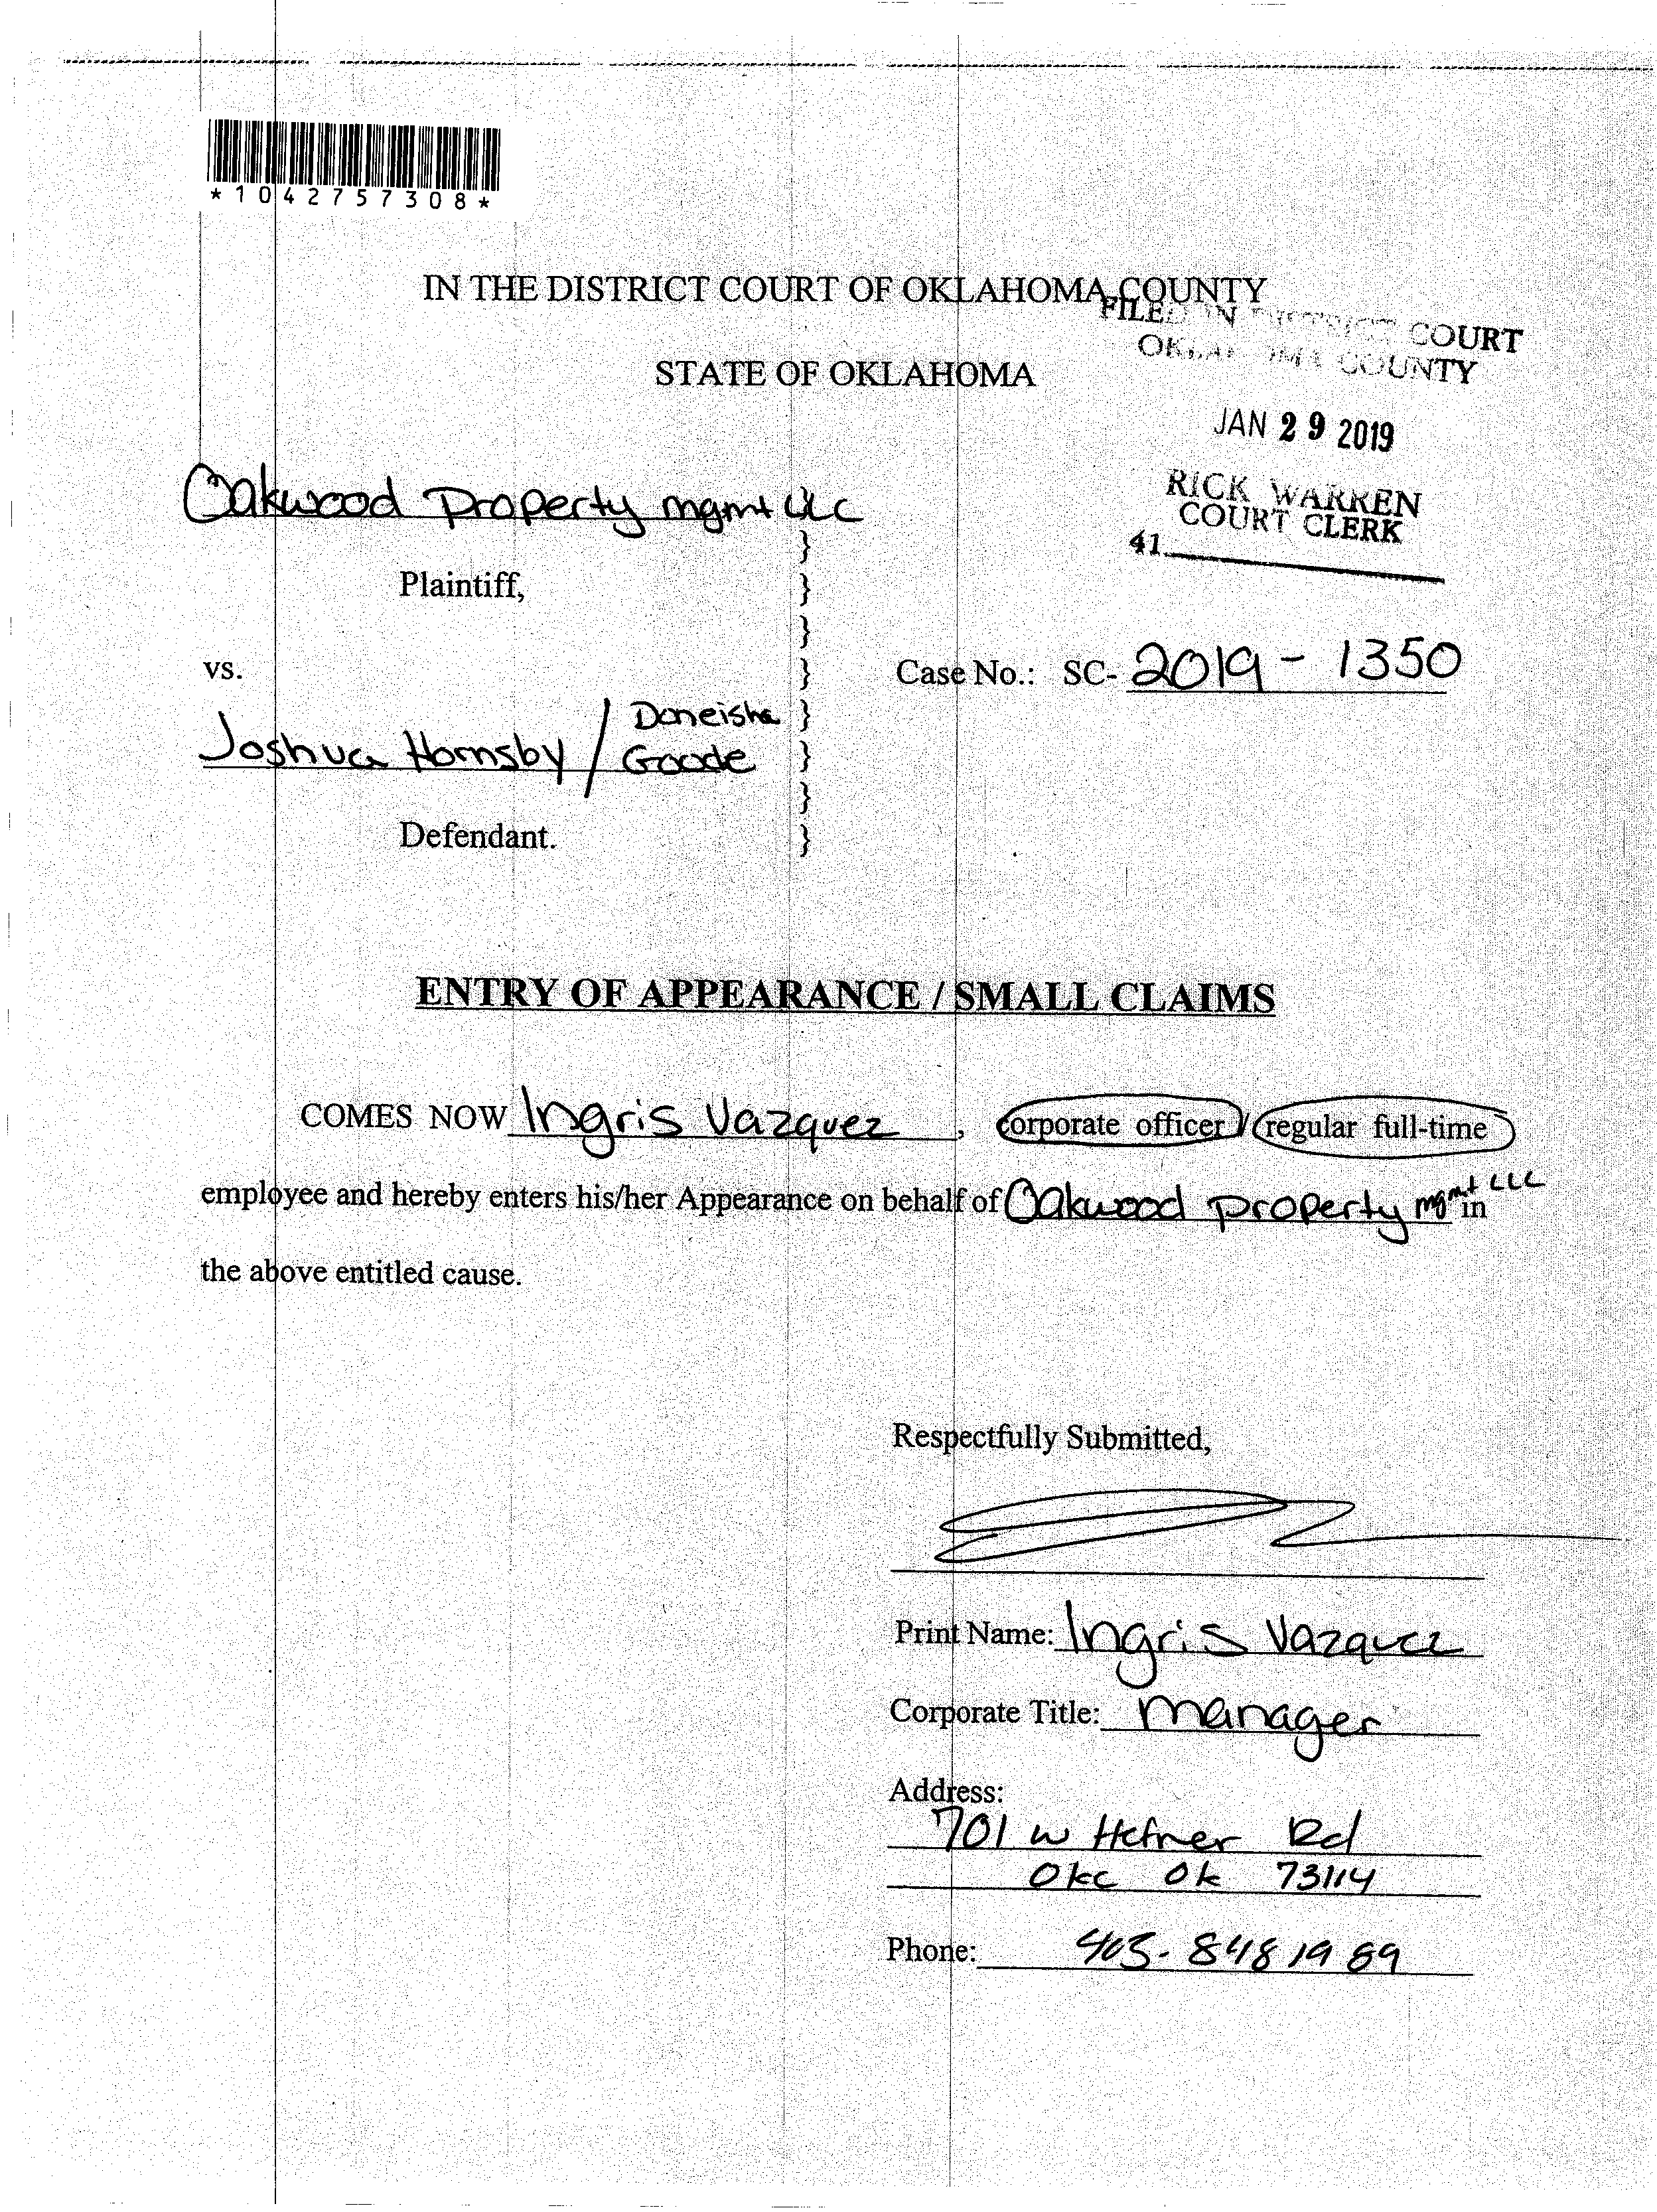 *1042757308*
IN THE DISTRICT COURT OF OKLAHOMA COUNTY
FILED IN DISTRICT COURT
OKLAHOMA COUNTY
STATE OF OKLAHOMA
JAN 29 2019
RICK WARREN
COURT CLERK
41
Oakwood Property mgmt LLC
}
Plaintiff, }
}
vs. }
Case No.: SC- 2019 - 1350
Joshua Hornsby / Doneisha Goode }
}
}
Defendant. }
ENTRY OF APPEARANCE / SMALL CLAIMS
COMES NOW Ingris Vazquez , corporate officer / regular full-time
employee and hereby enters his/her Appearance on behalf of Oakwood property mgmt LLC in
the above entitled cause.
Respectfully Submitted,
Print Name: Ingris Vazquez
Corporate Title: manager
Address:
701 W Hefner Rd
Okc Ok 73114
Phone: 405-848 1989